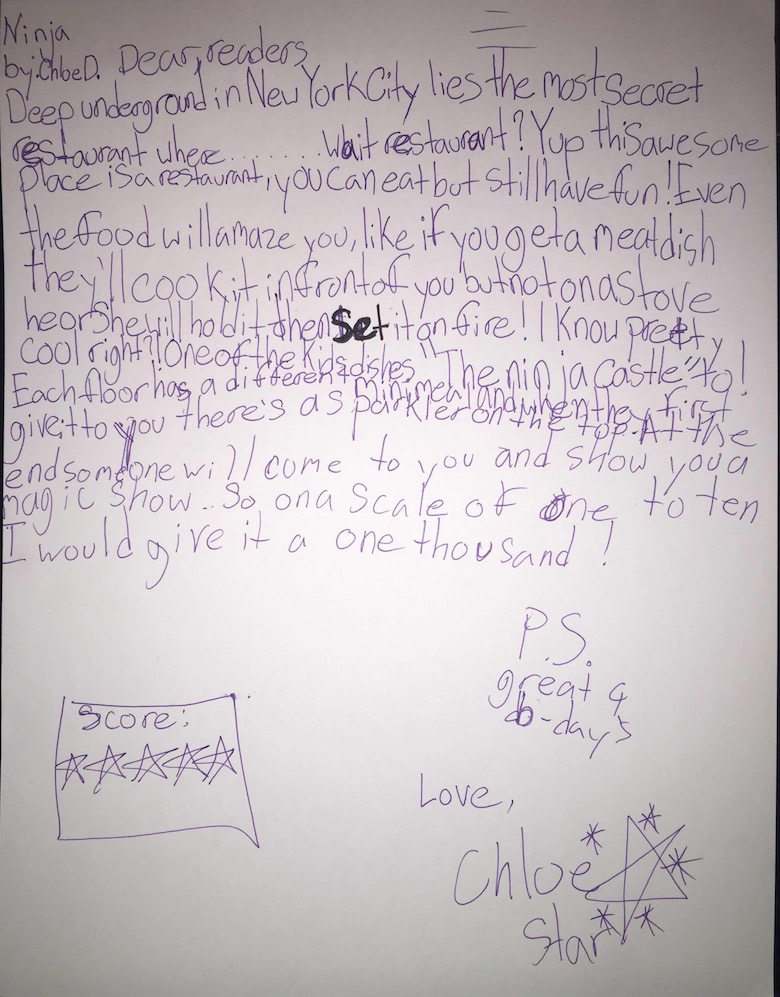 Ninja
by: Chloe D. Dear, readers
Deep underground in New York City lies the most secret
restaurant where........ Wait restaurant? Yup this awesome
place is a restaurant, you can eat but still have fun! Even
the food will amaze you, like if you get a meat dish
they'll cook it in front of you but not on a stove
he or she will hold it then Set it on fire! I know pretty
cool right?! One of the kids dishes "The ninja castle" to!
Each floor has a different mini meal and when they first
give it to you there's a sparkler on the top. At the
end someone will come to you and show you a
magic show.. So on a scale of one to ten
I would give it a one thousand!
P.S.
great 4
b-day's
Score:
Love,
Chloe
Star